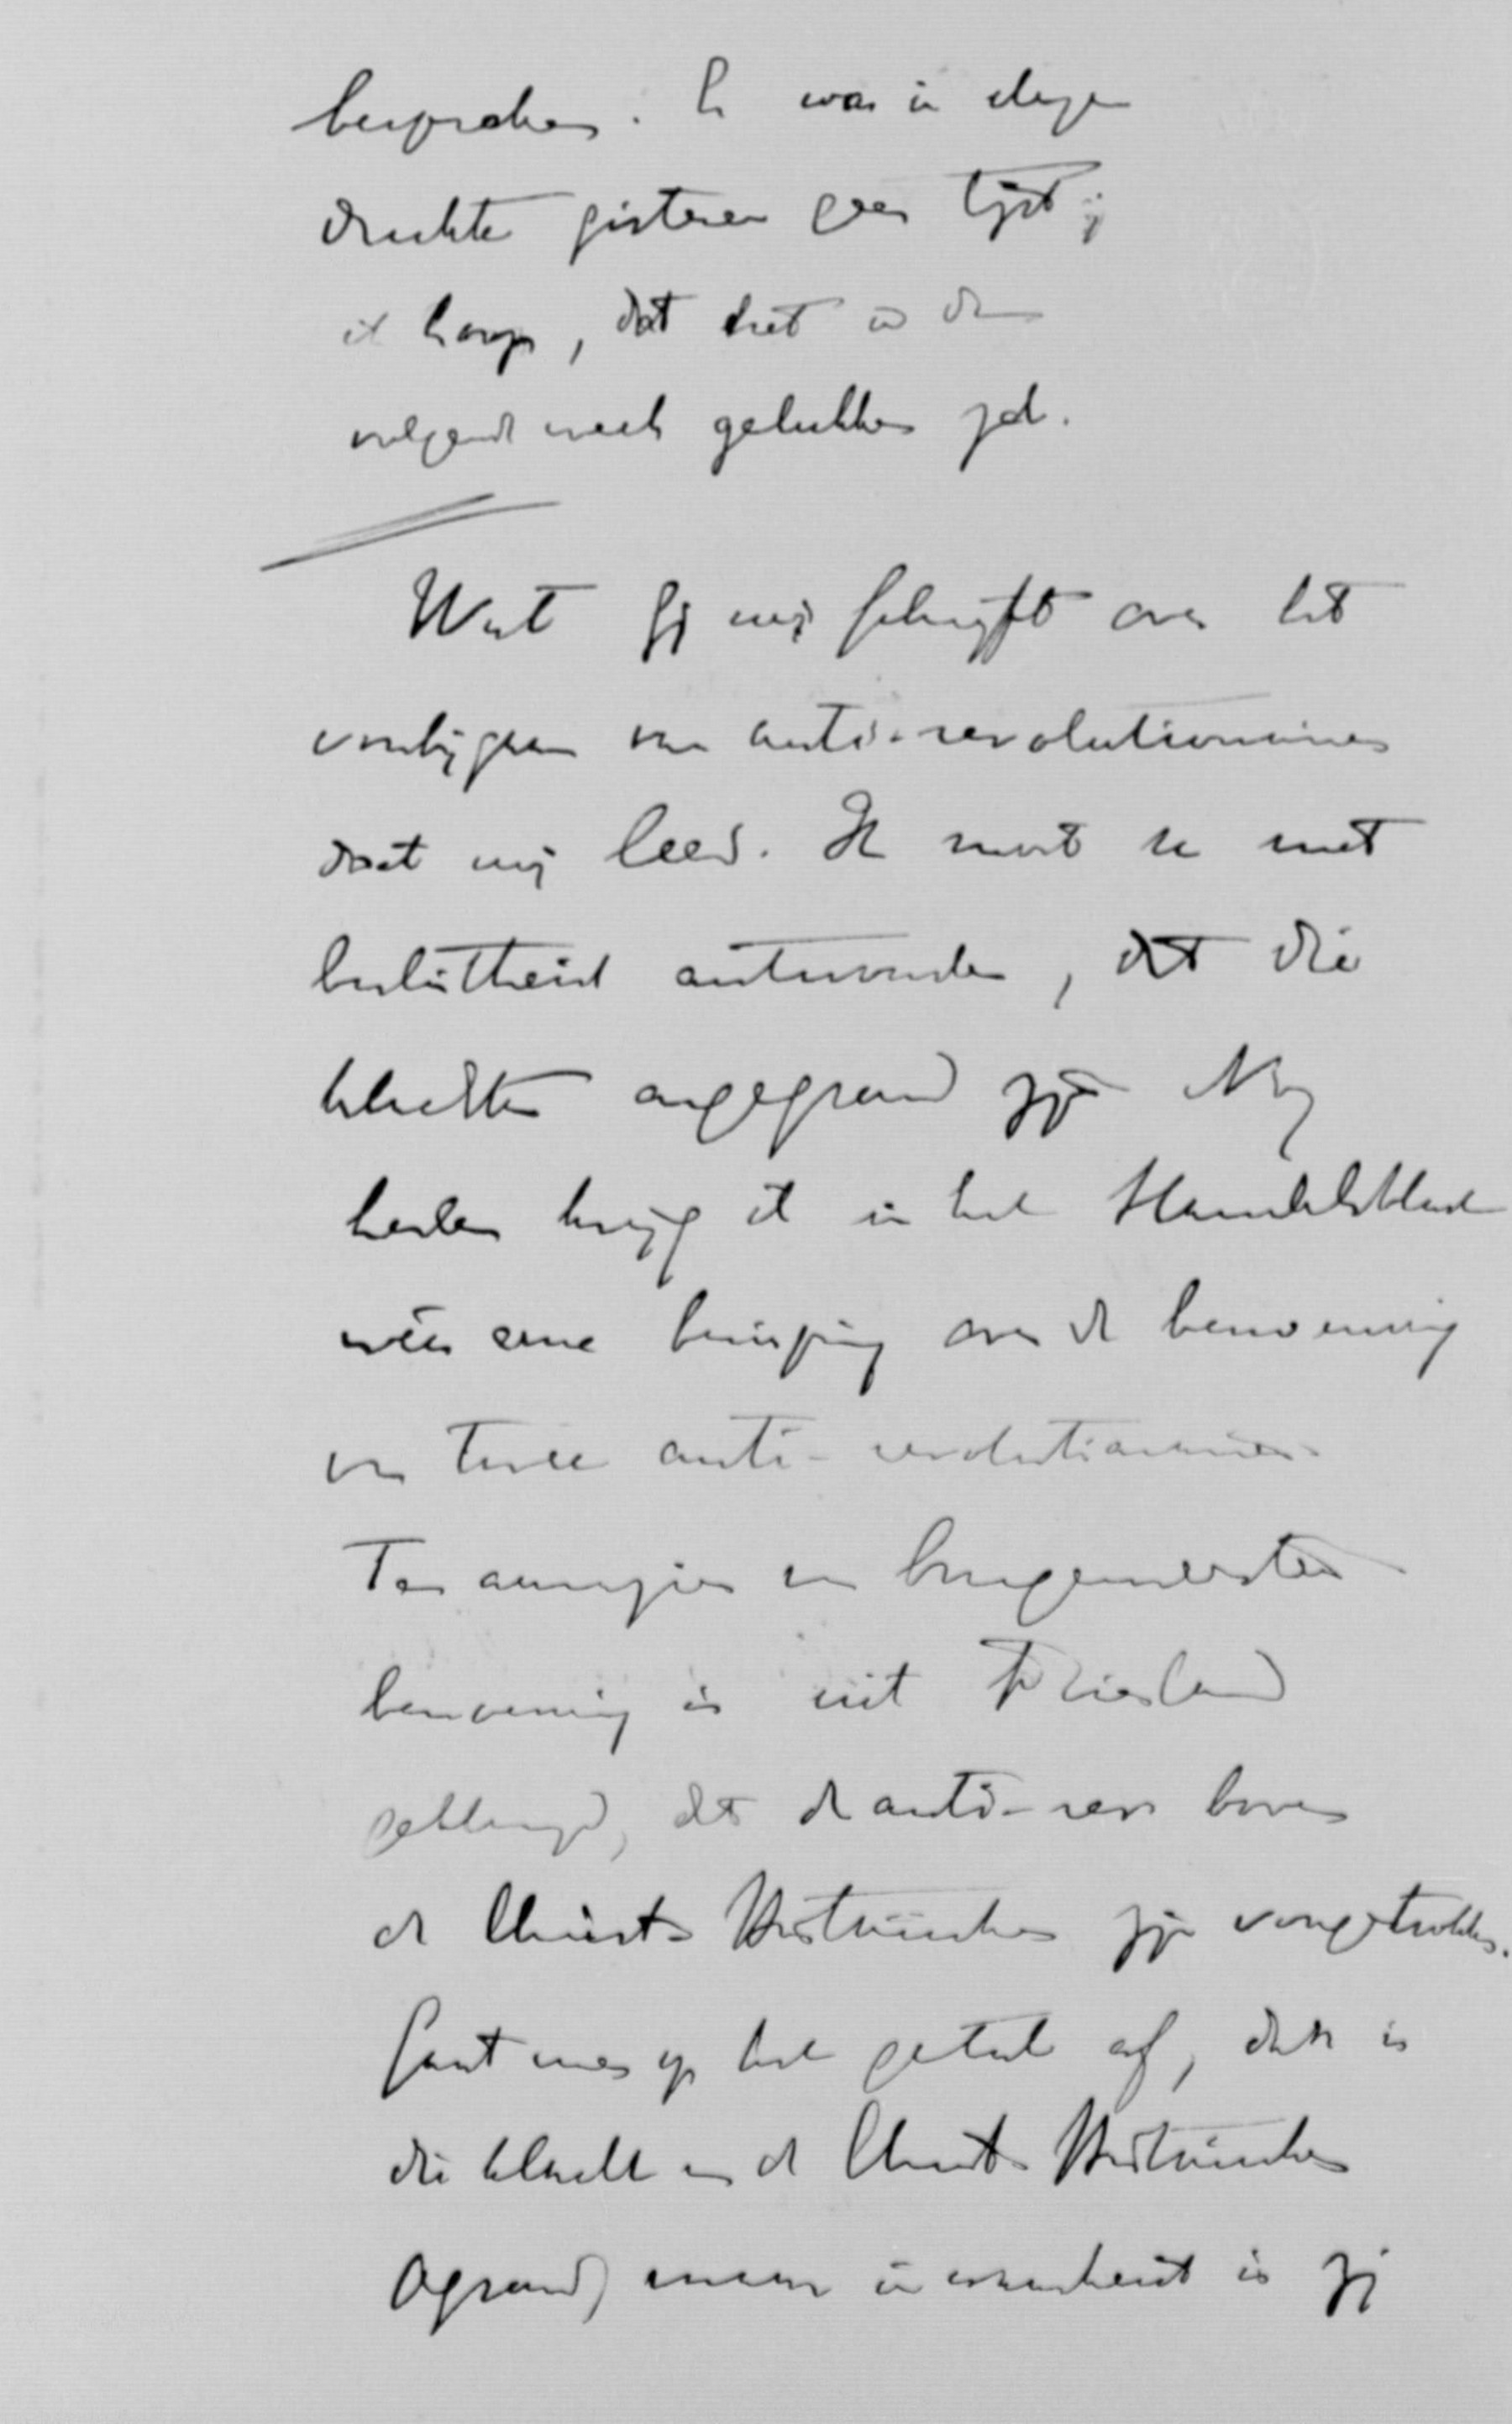 besproken. Er was in deze
drukte gisteren geen tijd;
ik hoop, dat het in de
volgende week gelukken zal.
Wat gij mij schrijft over het
voorbijgaan van anti-revolutionairen
doet mij leed. Ik moet u met
beslistheid antwoorden, dat die
klachten ongegrond zijn. Nog
heden krijg ik in het Handelsblad
weer eene berisping over de benoeming
van twee anti-revolutionairen.
Ten aanzien van burgemeesters
benoeming is uit Friesland
geklaagd, dat de anti-rev boven
de Christ. Historischen zijn voorgetrokken.
Gaat men op het getal af, dan is
die klacht van de Christ. Historischen
gegrond, maar in waarheid is zij